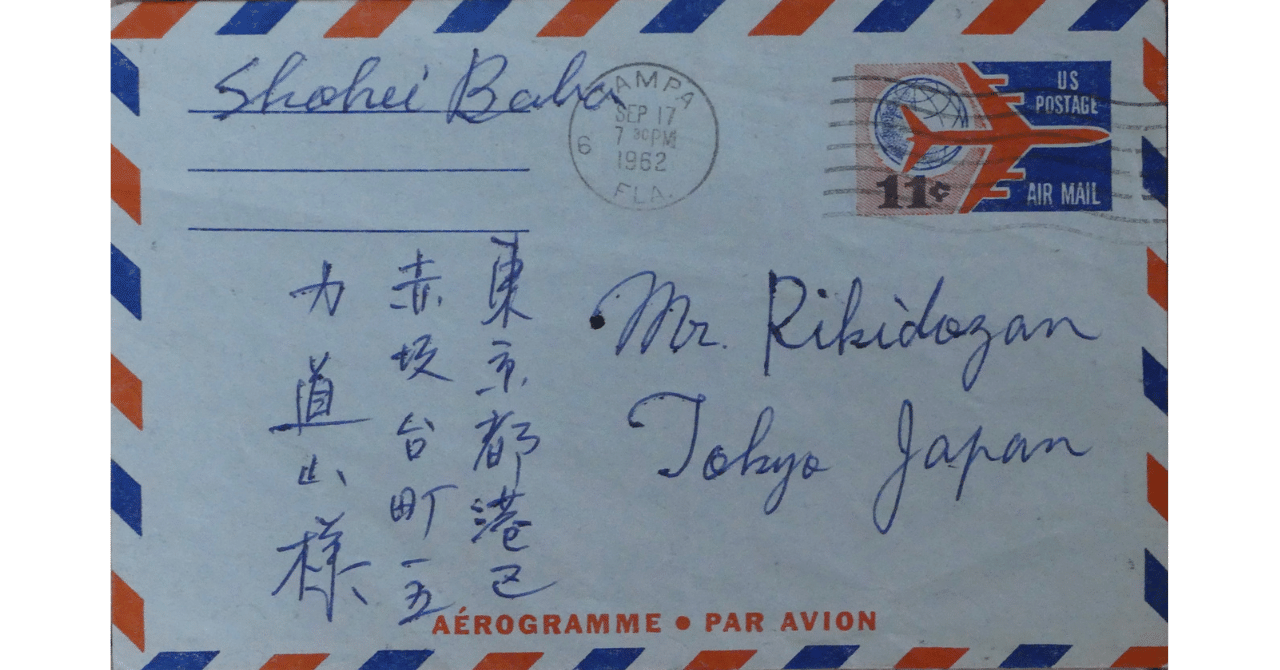 Shohei Baba
TAMPA
SEP 17
7 30 PM
6
1962
FLA.
US
POSTAGE
11¢
AIR MAIL
Mr. Rikidozan
Tokyo Japan
東京都港区
赤坂台町一五
力道山様
AÉROGRAMME • PAR AVION